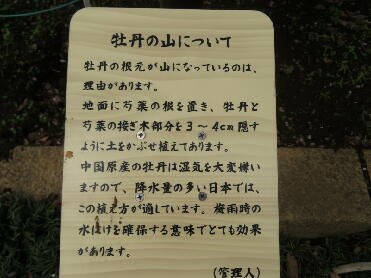 牡丹の山について
牡丹の根元が山になっているのは、
理由があります。
地面に芍薬の根を置き、牡丹と
芍薬の接ぎ木部分を3～4cm隠す
ように土をかぶせ植えてあります。
中国原産の牡丹は湿気を大変嫌い
ますので、降水量の多い日本では、
この植え方が適しています。梅雨時の
水はけを確保する意味でとても効果
があります。
（管理人）